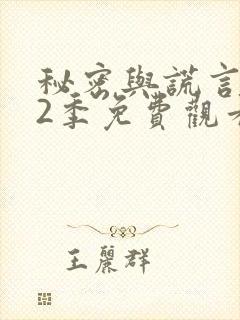 秘密與謊言
2季免費觀看
王麗群